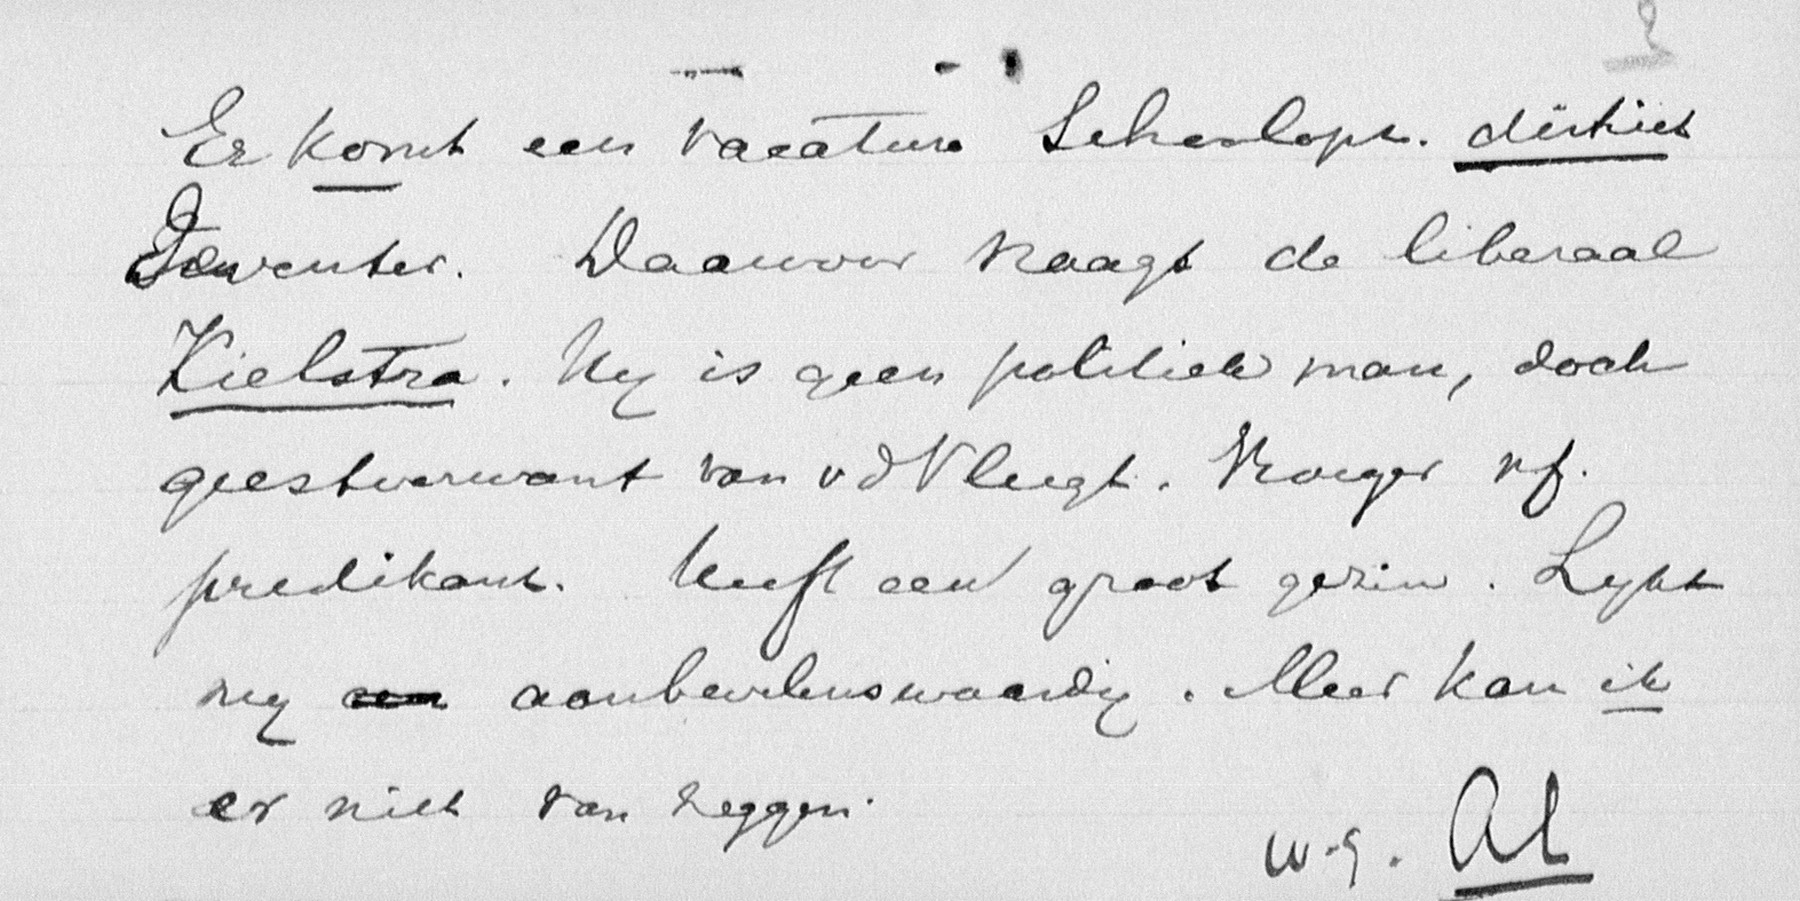 Er komt een vacature Schoolopz. district
Deventer. Daarvoor vraagt de liberaal
Kielstra. Hy is geen politiek man, doch
geestverwant van v d Vlugt. Vroeger rf.
predikant. Heeft een groot gezin. Lykt
my aanbevelenswaardig. Meer kan ik
er niet van zeggen.
w.g. Al